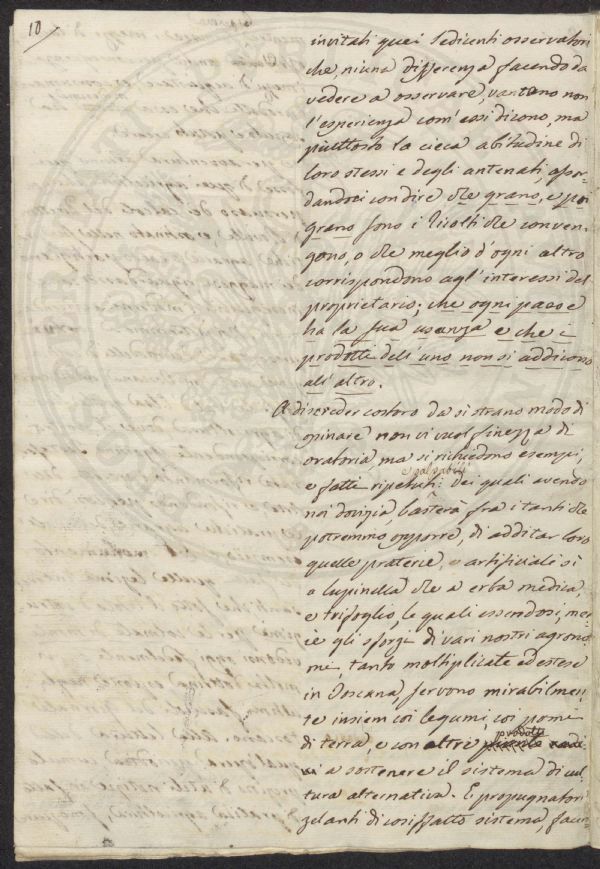 10
invitati quei sedicenti osservatori
che niuna differenza facendo da
vedere a osservare, vantano non
l'esperienza com'essi dicono, ma
piuttosto la cieca abitudine di
loro stessi e degli antenati,
con dire che grano, e poi
grano sono i ricolti che conven-
gono, o che meglio d'ogni altro
corrispondono agl'interessi del
proprietario; che ogni paese
ha la sua usanza e che i
prodotti dell'uno non si addicono
all'altro.
A discreder costoro da sì strano modo di
opinare non vi vuol finezza di
oratoria, ma si richiedono esempi,
e palpabili
e fatti ripetuti dei quali avendo
noi dovizia, basterà fra i tanti che
potremmo opporre, di additar loro
quelle praterie, artificiali sì
a lupinella che a erba medica,
e trifoglio, le quali essendosi, mer-
cè gli sforzi di vari nostri agrono-
mi, tanto moltiplicate ed estese
in Toscana, servono mirabilmen-
te insiem coi legumi, coi pomi
prodotti
di terra, e con altre piante radi
a sostenere il sistema di cul-
tura alternativa. I propugnatori
zelanti di cosiffatto sistema, facen-